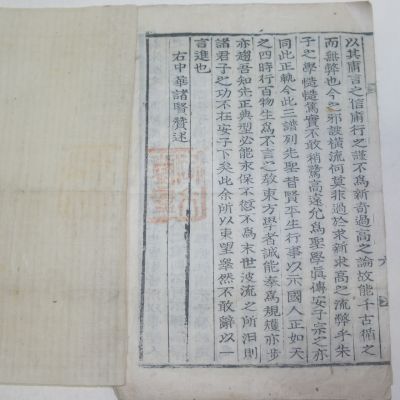 以其庸言之信庸行之謹不爲新奇過高之論故能千古循之
而無弊也今之邪詖橫流何莫非過於求新求高之流弊乎朱
子之學慥慥篤實不敢稍騖高遠允爲聖學眞傳安子宗之亦
同此正軌今此三譜列先聖昔賢平生行事以示國人正如天
之四時行百物生爲不言之敎東方學者誠能奉爲規矱亦步
亦趨吾知先正典型必能永保不愆不爲末世波流之所汨則
諸君子之功不在安子下矣此余所以東望擧然不敢辭以一
言進也
右中華諸賢贊述